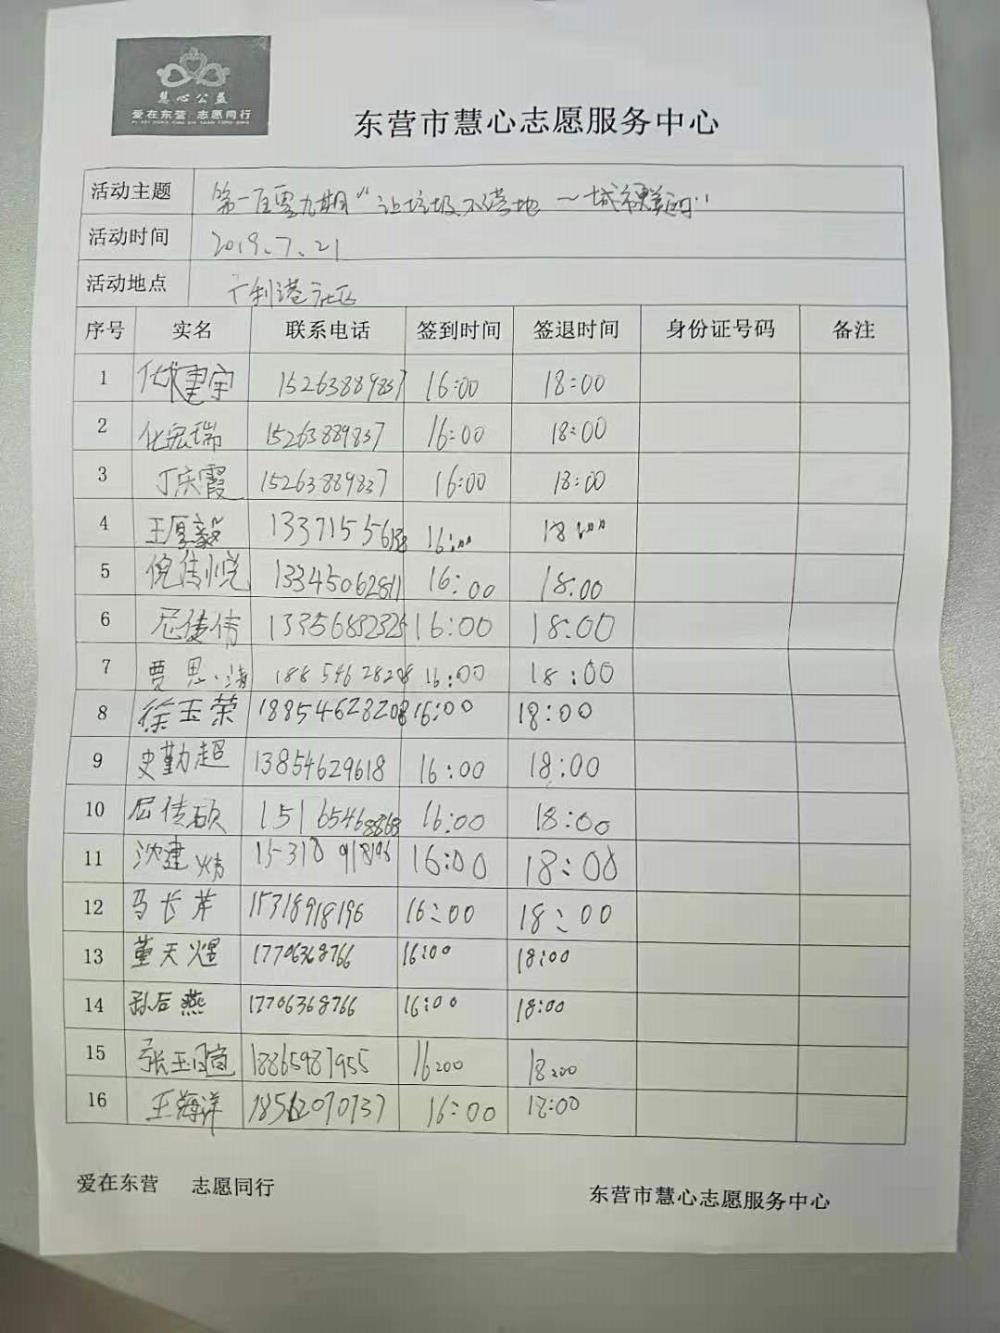 慧心公益
爱在东营 志愿同行
东营市慧心志愿服务中心
活动主题 第一百零九期“让垃圾不落地～城市更美丽”
活动时间 2019.7.21
活动地点 广利港社区
序号 实名 联系电话 签到时间 签退时间 身份证号码 备注
1 建宇 15263889837 16:00 18:00
2 化宏瑞 15263889837 16:00 18:00
3 丁庆霞 15263889837 16:00 18:00
4 王厚毅 16:00 18:00
5 倪传悦 13345062811 16:00 18:00
6 尼建伟 13356832325 16:00 18:00
7 贾思涵 18854628208 16:00 18:00
8 徐玉荣 18854628208 16:00 18:00
9 史勤超 13854629618 16:00 18:00
10 尼传硕 15165468868 16:00 18:00
11 沈建炜 15318918196 16:00 18:00
12 马长芹 15318918196 16:00 18:00
13 董天煜 17706368766 16:00 18:00
14 孙后燕 17706368766 16:00 18:00
15 张玉瑄 18865987955 16:00 18:00
16 王海洋 18562070737 16:00 18:00
爱在东营 志愿同行
东营市慧心志愿服务中心